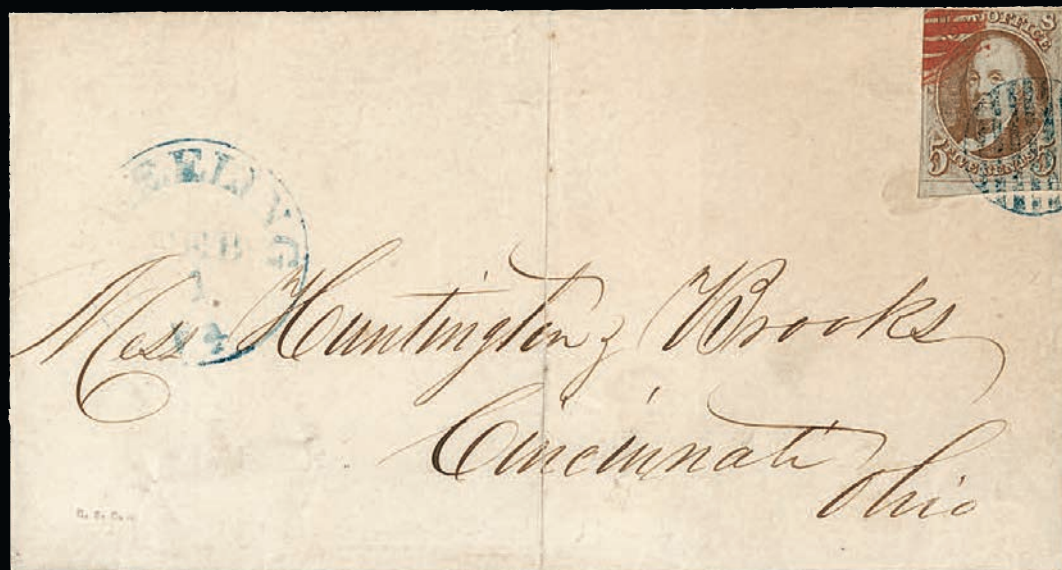 POST OFFICE
5 FIVE CENTS 5
EELING
FEB
1
Mess Huntington & Brooks
Cincinnati
Ohio